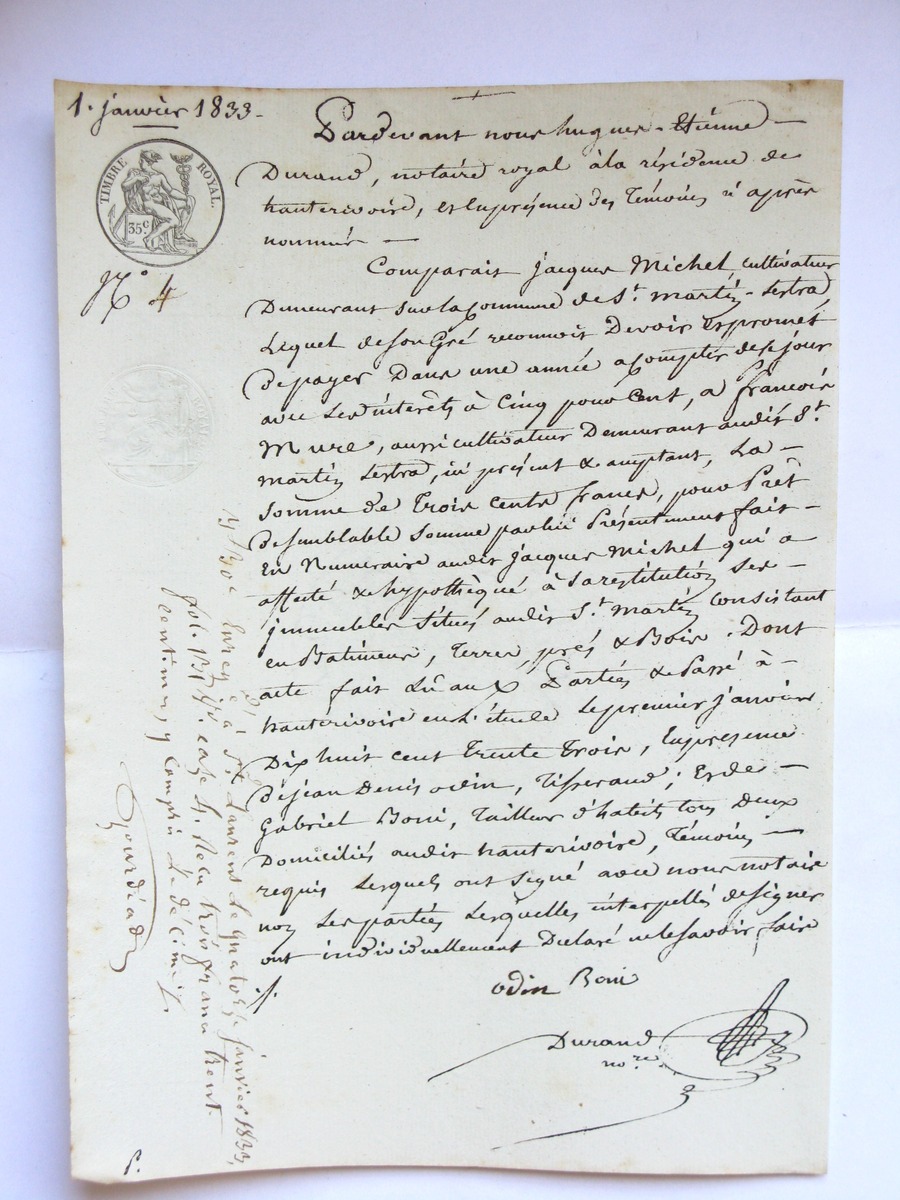 1. janvier 1833.
TIMBRE ROYAL.
35c.
N.o 4
Pardevant nous hugues-Etiénne
Durand, notaire royal à la résidence de
hauterivoire, et en présence des Témoins ci après
nommés
Comparait jacques Michel, cultivateur
Demeurant sur la Commune de St. martin-Lestra
Lequel de son Gré reconnoit Devoir et promet
de payer Dans une année a compter de ce jour
avec Les intérêts à Cinq pour Cent, a francois
Mure, aussi cultivateur Demeurant audit St.
martin Lestra, ici présent & acceptant, La
Somme de Trois Cents francs, pour Prêt
de semblable Somme par lui Présentement fait
En Numeraire audit jacques Michel qui a
affecté & hypothèqué à Sa restitution Ses
jmmeubles Situés audit St. martin Consistant
en Batimens, Terres, prés & Bois. Dont
acte fait Lû aux Parties & Passé à
hautérivoire en L'étude Le premier janvier
Dix huit cent Trente Trois, En présence
de jean Denis odin, Tisserand; Et de
Gabriel Boni, Tailleur d'habits tous Deux
Domiciliés audit hauterivoire, Témoins
requis Lesquels ont Signé avec nous notaire
non Les parties Lesquelles interpellés de signer
ont individuellement Déclaré ne le savoir faire
odin Boni
Durand
nore.
Enreg. à St. Laurent Le quatorze janvier 1833,
fol. case 4. Recu trois francs trent
centimes, y Compris Le décime
Gourdiad
P.